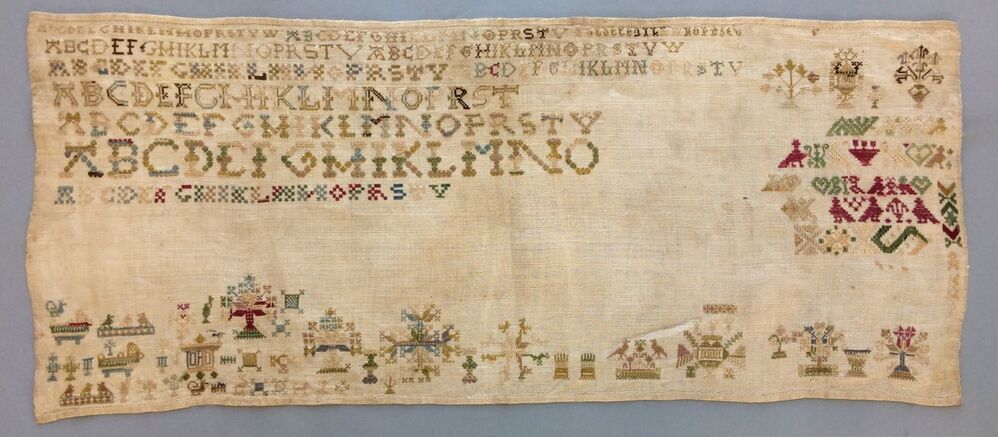 ABCDEFGHIKLMNOPRSTVW ABCDEFGHIKLMNOPRSTV
ABCDEFGHIKLMNOPRSTV ABCDEFGHIKLMNOPRSTVW
ABCDEFGHIKLMNOPRSTV BCDEFGHIKLMNOPRSTV
ABCDEFGHIKLMNOPRST
ABCDEFGHIKLMNOPRSTV
ABCDEFGHIKLMNO
ABCDEFGHIKLMNOPRSTV